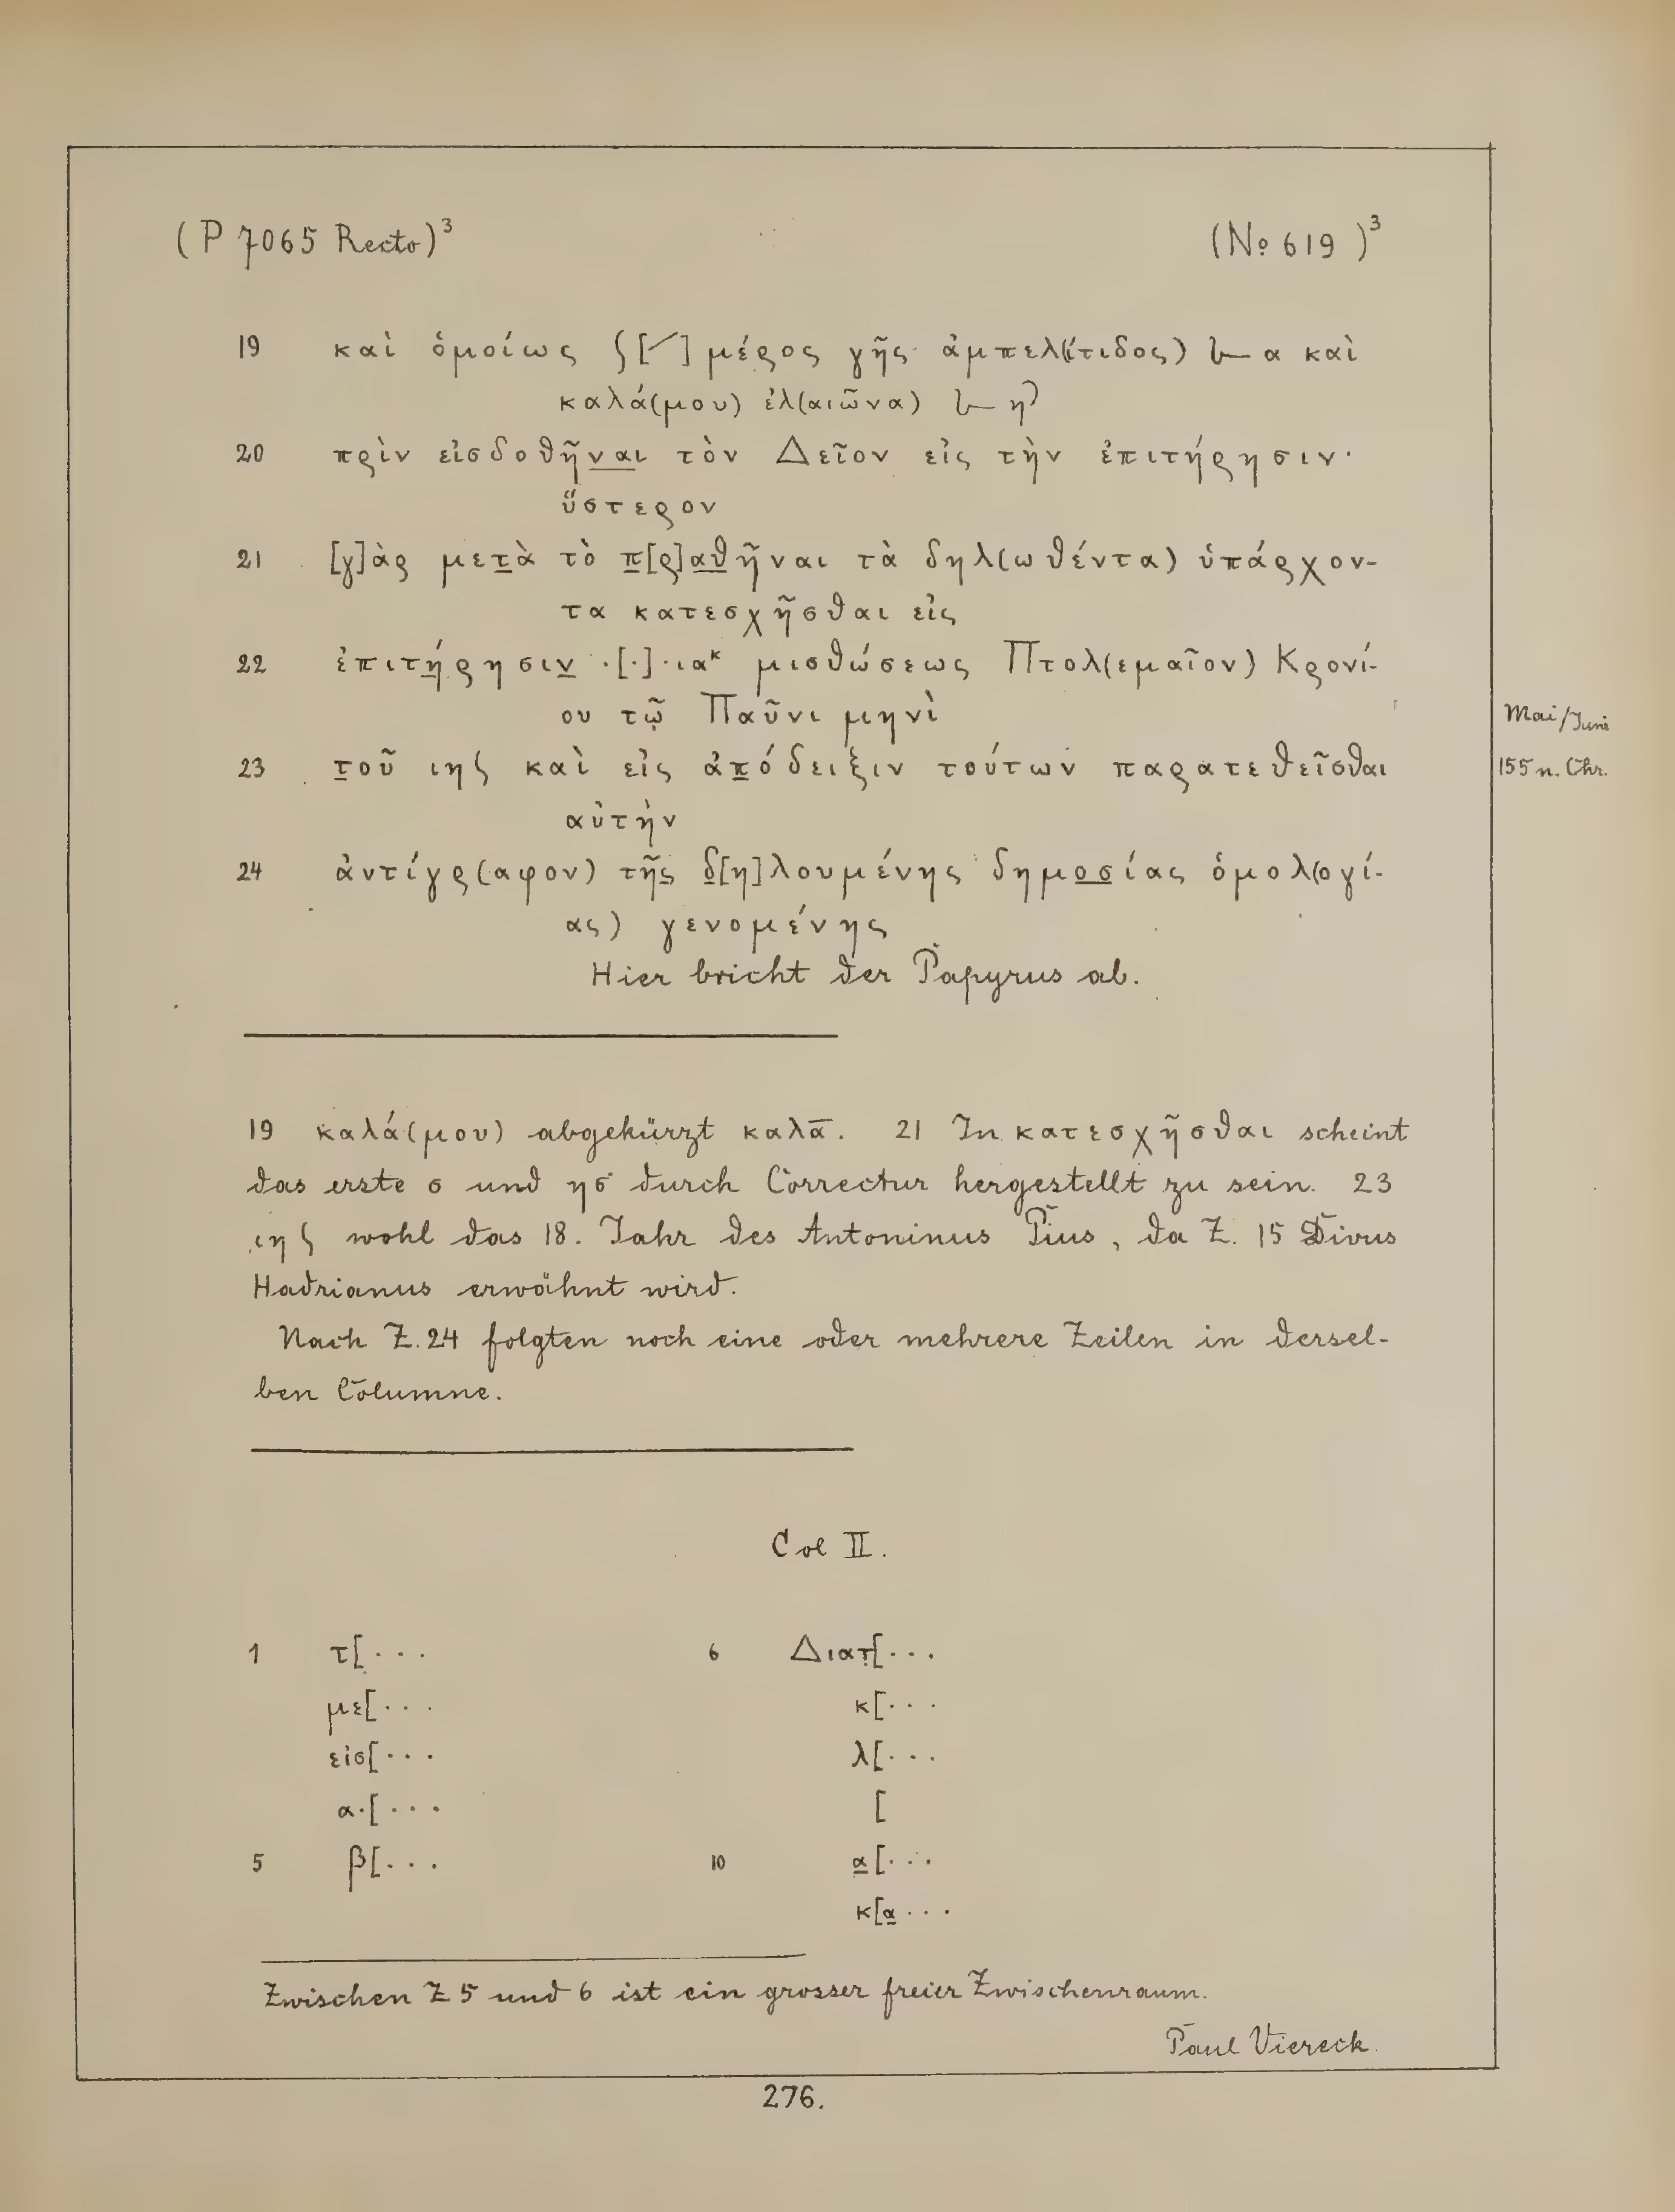 (P 7065 Recto)³ (No 619)³
19 καὶ ὁμοίως ʃ[⸍] μέρος γῆς ἀμπελ(ίτιδος) 𐅵 α καὶ
καλά(μου) ἐλ(αιῶνα) η
20 πρὶν εἰσδοθῆν̲α̲ι τὸν Δεῖον εἰς τὴν ἐπιτήρησιν·
ὕστερον
21 [γ]ὰρ μετ̲ὰ τὸ π̲[ρ]α̲θ̲ῆναι τὰ δηλ(ωθέντα) ὑπάρχον-
τα κατεσχῆσθαι εἰς
22 ἐπιτή̲ρησιν̲ ·[·]·ιαᵏ μισθώσεως Πτολ(εμαῖον) Κρονί-
ου τῷ Παῦνι μηνὶ
Mai/Juni
23 τ̲οῦ ιηʃ καὶ εἰς ἀπ̲όδειξιν τούτων παρατεθεῖσθαι
155 n. Chr.
αὐτὴν
24 ἀντίγρ(αφον) τῆς̲ δ̲[η]λουμένης δημο̲σ̲ίας ὁμολ(ογί-
ας) γενομένης
Hier bricht der Papyrus ab.
19 καλά(μου) abgekürzt καλα̅. 21 In κατεσχῆσθαι scheint
das erste σ und ησ durch Correctur hergestellt zu sein. 23
ιηʃ wohl das 18. Jahr des Antoninus Pius, da Z. 15 Divus
Hadrianus erwähnt wird.
Nach Z. 24 folgten noch eine oder mehrere Zeilen in dersel-
ben Columne.
Col II.
1 τ[· · ·
με[· · ·
εἰσ[· · ·
α·[· · ·
5 β[· · ·
6 Διατ̣[· · ·
κ[· · ·
λ[· · ·
[
10 α̲[· · ·
κ[α̲ · · ·
Zwischen Z 5 und 6 ist ein grosser freier Zwischenraum.
Paul Viereck.
276.